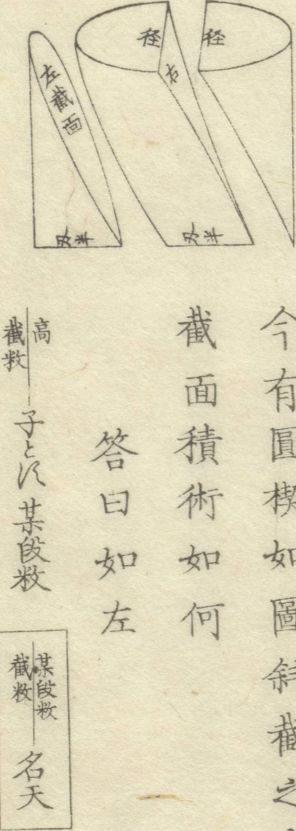 径
径
右
左截面
今有圓楔如圖斜截之
截面積術如何
答曰如左
高
截数
子と
某段数
某段数
截数
名天